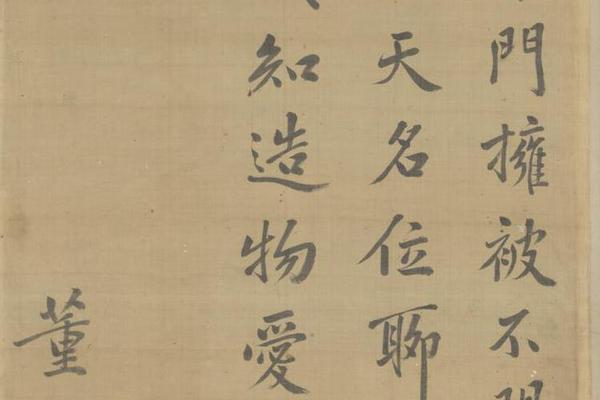 門擁被不
天名位聊
知造物愛
董